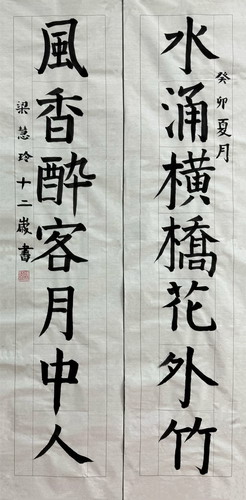 癸卯夏月
水涌橫橋花外竹
風香醉客月中人
梁慧玲十二歲書